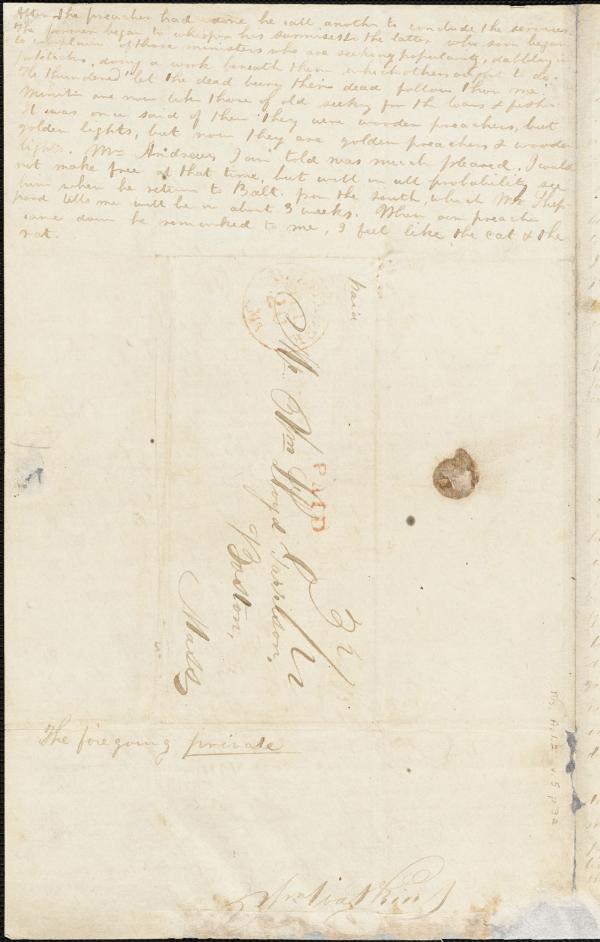 After the preacher had done he call another to conclude the services.
The former began to whisper his surmises to the latter, who soon began
to complain of those ministers who are seeking popularity, dabbling in
politicks, doing a work beneath them which others ought to do.
He thundered "let the dead bury their dead follow thou me."
Ministers are now like those of old seeking for the loaves & fishes.
It was once said of them they were wooden preachers, but
golden lights, but now they are golden preachers & wooden
lights. Mr Andrews I am told was much pleased. I could
not make free at that time, but will in all probability see
him when he return to Balt. from the south, which Mr Shep-
pard tells me will be in about 3 weeks. When our preacher
came down he remarked to me, I feel like the cat & the
rat.
paid
PAID
Mr. Wm Lloyd Garrison,
Boston,
Mass
The foregoing private
Ms. A.1.2 v.5 p.32
Watkins